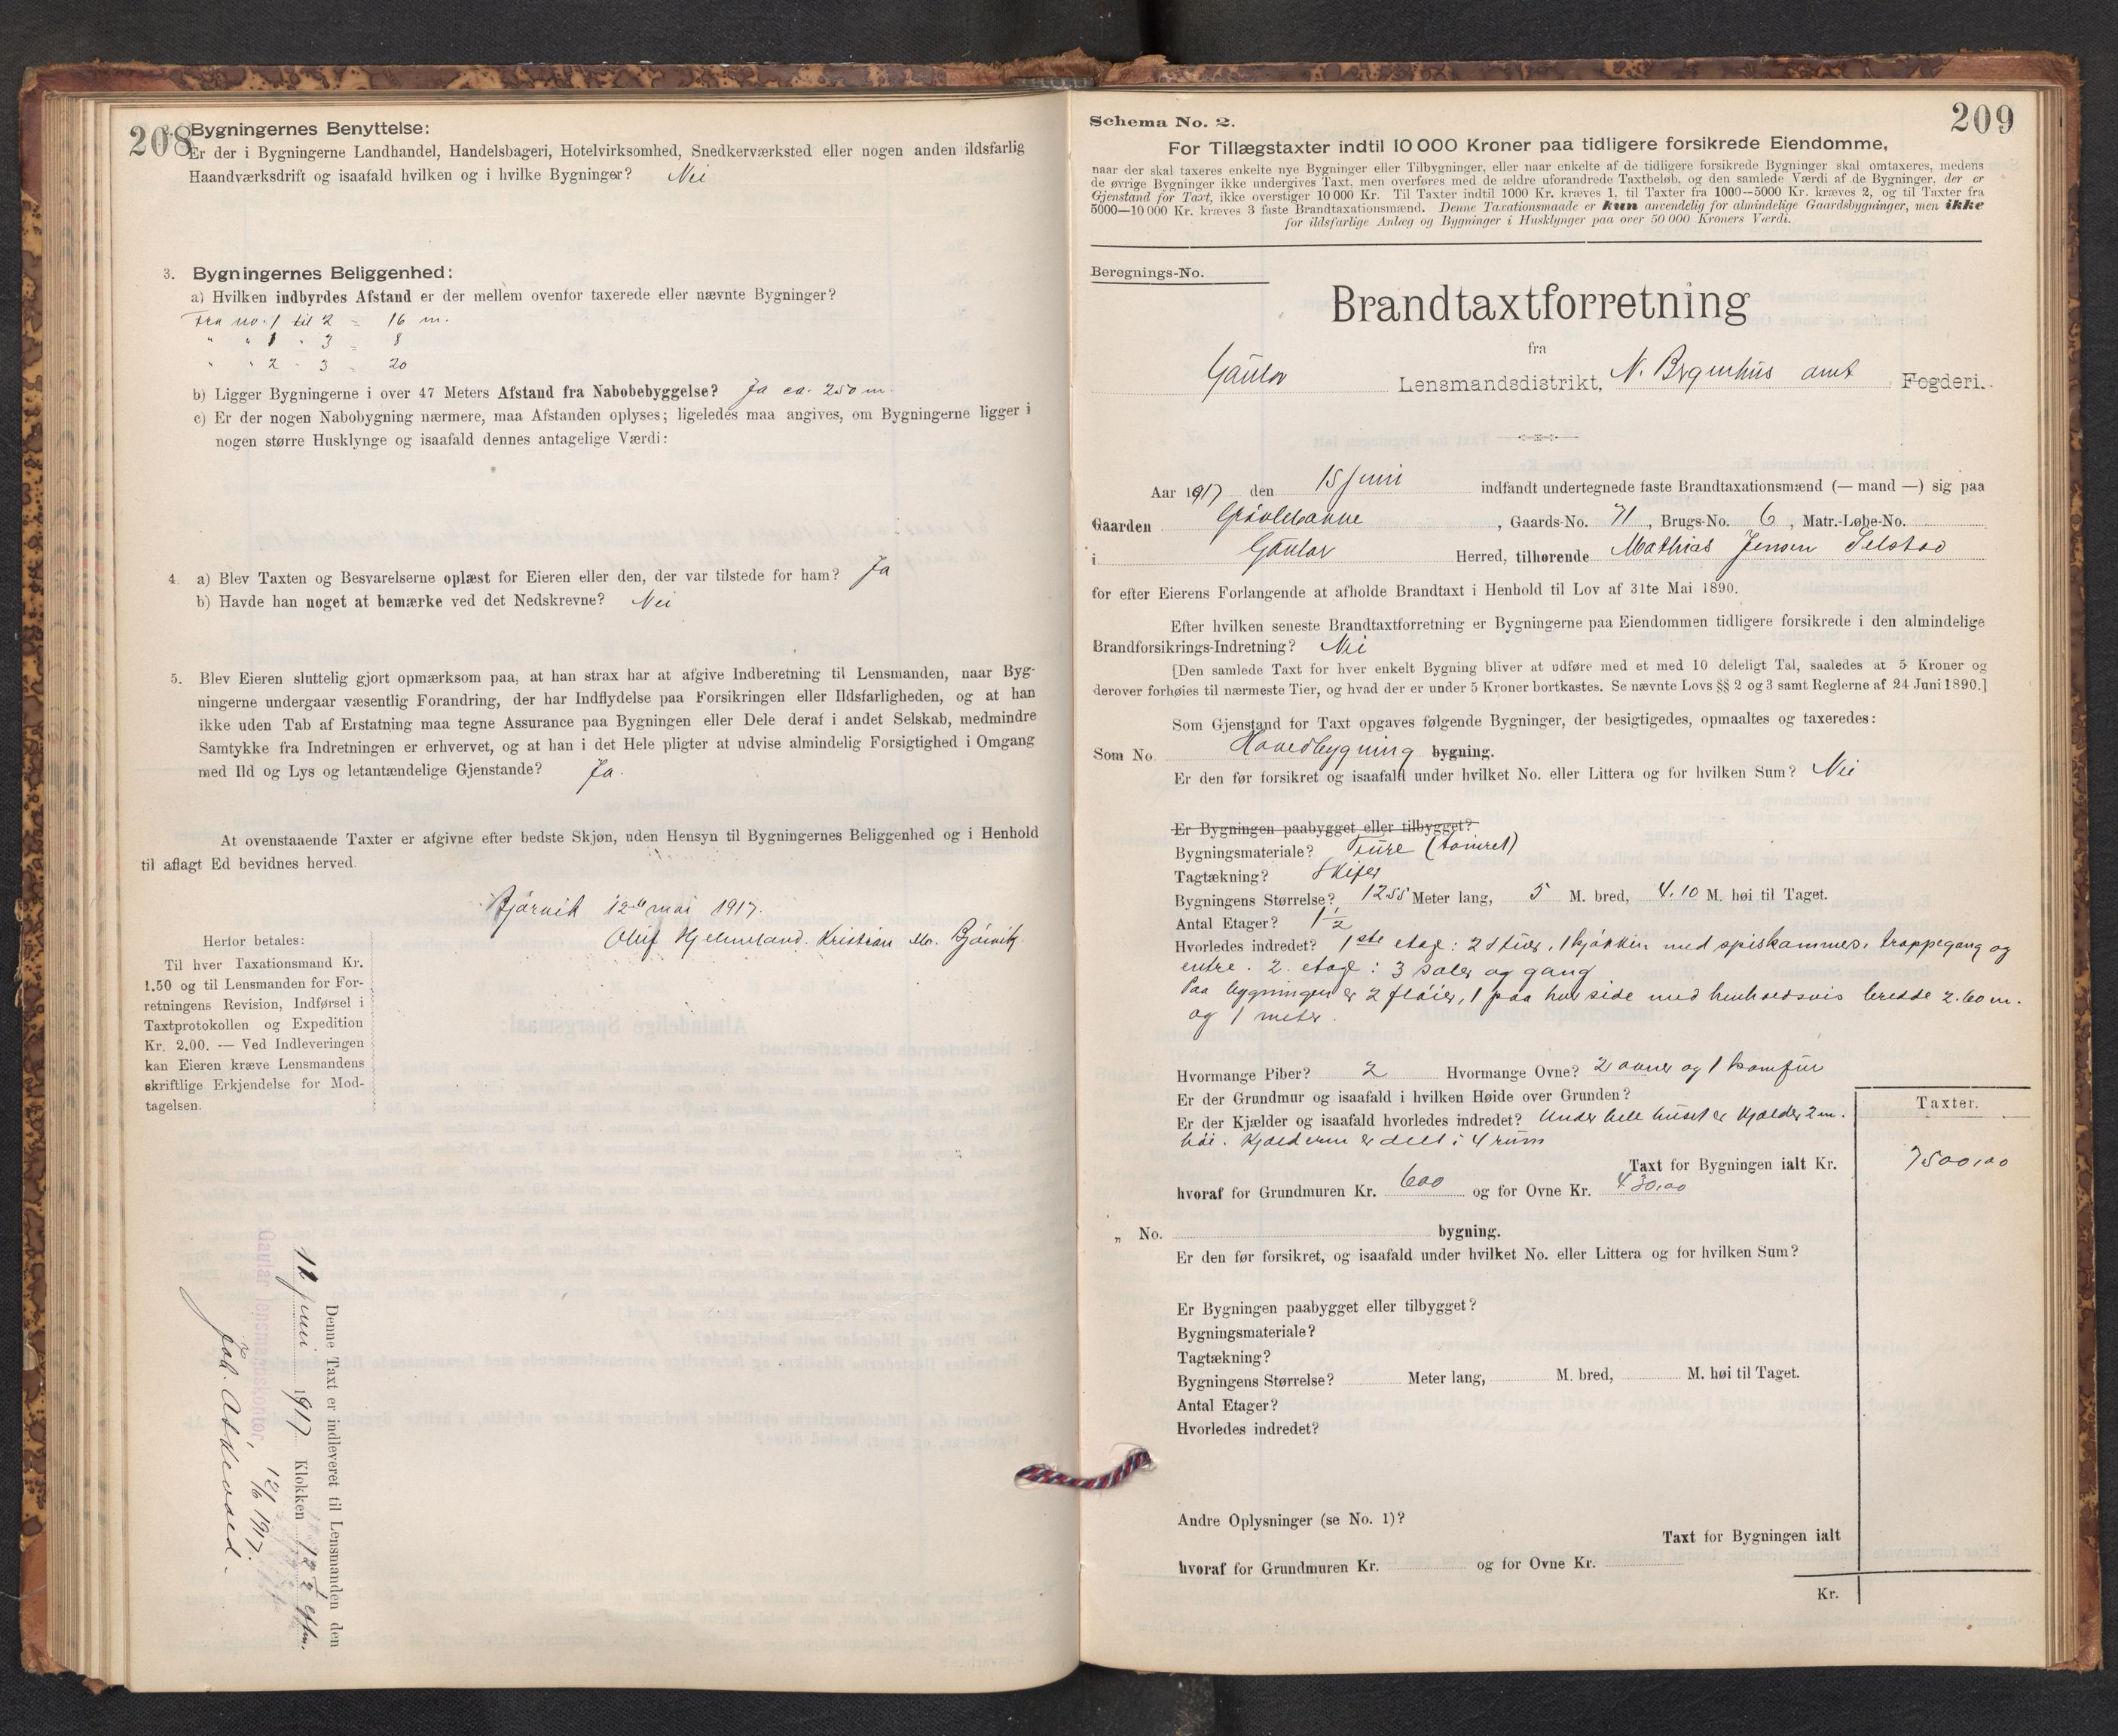 208
Bygningernes Benyttelse:
Er der i Bygningerne Landhandel, Handelsbageri, Hotelvirksomhed, Snedkerværksted eller nogen anden ildsfarlig
Haandværksdrift og isaafald hvilken og i hvilke Bygninger? Nei
3. Bygningernes Beliggenhed:
a) Hvilken indbyrdes Afstand er der mellem ovenfor taxerede eller nævnte Bygninger?
Fra no. 1 til 2 = 16 m.
" " 1 - 3 = 8
" " 2 - 3 = 20
b) Ligger Bygningerne i over 47 Meters Afstand fra Nabobebyggelse? Ja ca. 250 m.
c) Er der nogen Nabobygning nærmere, maa Afstanden oplyses; ligeledes maa angives, om Bygningerne ligger i
nogen større Husklynge og isaafald dennes antagelige Værdi:
4. a) Blev Taxten og Besvarelserne oplæst for Eieren eller den, der var tilstede for ham? Ja
b) Havde han noget at bemærke ved det Nedskrevne? Nei
5. Blev Eieren sluttelig gjort opmærksom paa, at han strax har at afgive Indberetning til Lensmanden, naar Byg-
ningerne undergaar væsentlig Forandring, der har Indflydelse paa Forsikringen eller Ildsfarligheden, og at han
ikke uden Tab af Erstatning maa tegne Assurance paa Bygningen eller Dele deraf i andet Selskab, medmindre
Samtykke fra Indretningen er erhvervet, og at han i det Hele pligter at udvise almindelig Forsigtighed i Omgang
med Ild og Lys og letantændelige Gjenstande? Ja.
At ovenstaaende Taxter er afgivne efter bedste Skjøn, uden Hensyn til Bygningernes Beliggenhed og i Henhold
til aflagt Ed bevidnes herved.
Bjørvik 12te mai 1917.
Oluf Hjelmeland. Kristian M. Bjørvik
Herfor betales:
Til hver Taxationsmand Kr.
1.50 og til Lensmanden for For-
retningens Revision, Indførsel i
Taxtprotokollen og Expedition
Kr. 2.00. — Ved Indleveringen
kan Eieren kræve Lensmandens
skriftlige Erkjendelse for Mod-
tagelsen.
Denne Taxt er indleveret til Lensmanden den
12 juni 1917 Klokken 12 1/2 efm.
Gaular lensmannskontor, 12/6 1917.
Joh.
209
Schema No. 2.
For Tillægstaxter indtil 10 000 Kroner paa tidligere forsikrede Eiendomme,
naar der skal taxeres enkelte nye Bygninger eller Tilbygninger, eller naar enkelte af de tidligere forsikrede Bygninger skal omtaxeres, medens
de øvrige Bygninger ikke undergives Taxt, men overføres med de ældre uforandrede Taxtbeløb, og den samlede Værdi af de Bygninger, der er
Gjenstand for Taxt, ikke overstiger 10 000 Kr. Til Taxter indtil 1000 Kr. kræves 1, til Taxter fra 1000—5000 Kr. kræves 2, og til Taxter fra
5000—10 000 Kr. kræves 3 faste Brandtaxationsmænd. Denne Taxationsmaade er kun anvendelig for almindelige Gaardsbygninger, men ikke
for ildsfarlige Anlæg og Bygninger i Husklynger paa over 50 000 Kroners Værdi.
Beregnings-No.
Brandtaxtforretning
fra
Gaular Lensmandsdistrikt, N. Bergenhus amt Fogderi.
Aar 1917 den 15 juni indfandt undertegnede faste Brandtaxationsmænd (— mand —) sig paa
Gaarden , Gaards-No. 71 , Brugs-No. 6 , Matr.-Løbe-No.
i Gaular Herred, tilhørende Mathias Jensen Selstad
for efter Eierens Forlangende at afholde Brandtaxt i Henhold til Lov af 31te Mai 1890.
Efter hvilken seneste Brandtaxtforretning er Bygningerne paa Eiendommen tidligere forsikrede i den almindelige
Brandforsikrings-Indretning? Nei
[Den samlede Taxt for hver enkelt Bygning bliver at udføre med et med 10 deleligt Tal, saaledes at 5 Kroner og
derover forhøies til nærmeste Tier, og hvad der er under 5 Kroner bortkastes. Se nævnte Lovs §§ 2 og 3 samt Reglerne af 24 Juni 1890.]
Som Gjenstand for Taxt opgaves følgende Bygninger, der besigtigedes, opmaaltes og taxeredes:
Som No. Hovedbygning bygning.
Er den før forsikret og isaafald under hvilket No. eller Littera og for hvilken Sum? Nei
Er Bygningen paabygget eller tilbygget?
Bygningsmateriale? Fure (tømret)
Tagtækning? Skifer
Bygningens Størrelse? 1255 Meter lang, 5 M. bred, 4.10 M. høi til Taget.
Antal Etager? 1 1/2
Hvorledes indredet? 1ste etage: 2 stuer, 1 kjøkken med spiskammer, trappegang og
entre. 2. etage: 3 saler og gang
Paa bygningen er 2 fløier, 1 paa hver side med henholdsvis bredde 2.60 m.
og 1 meter.
Hvormange Piber? 2 Hvormange Ovne? 2 ovner og 1 komfur
Er der Grundmur og isaafald i hvilken Høide over Grunden?
Er der Kjælder og isaafald hvorledes indredet? Under hele huset er kjælder 2 m.
høi. Kjælderen er delt i 4 rum
Taxter.
Taxt for Bygningen ialt Kr. 7500,00
hvoraf for Grundmuren Kr. 600 og for Ovne Kr. 430,00
„ No. bygning.
Er den før forsikret, og isaafald under hvilket No. eller Littera og for hvilken Sum?
Er Bygningen paabygget eller tilbygget?
Bygningsmateriale?
Tagtækning?
Bygningens Størrelse? Meter lang, M. bred, M. høi til Taget.
Antal Etager?
Hvorledes indredet?
Andre Oplysninger (se No. 1)?
Taxt for Bygningen ialt
hvoraf for Grundmuren Kr. og for Ovne Kr.
Kr.